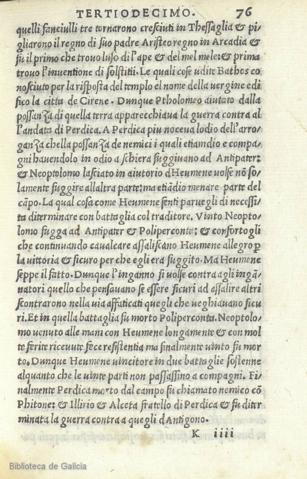 TERTIODECIMO. 76
quelli fanciulli tre tornarono cresciuti in Thessaglia & pi⸗
gliarono il regno di suo padre Aristeo regno in Arcadia &
fu il primo che trouo luso de l'ape & del mel mele: & prima
trouo l'inuentione di solstitii. Le quali cose udite Bathos co
nosciuto per la risposta del templo el nome della uergine edi
fico la citta de Cirene. Dunque Ptholomeo aiutato dalla
possanza di quella terra apparecchiaua la guerra contra al
l'andata di Perdica. A Perdica piu noceua lodio dell'arro⸗
ganza chella possanza de nemici i quali etiamdio e compa⸗
gni hauendolo in odio a schiera fuggiuano ad Antipater:
& Neoptolomo lasciato in aiutorio ad Heumene uolse nō so⸗
lamente fuggire allaltra parte: ma etiādio menare parte del
cāpo. La qual cosa come Heumene senti par uegli di necessi⸗
ta diterminare con battaglia col traditore. Vinto Neopto⸗
lomo fugga ad Antipater & Poliperconte: & confortogli
che continuando caualcare assaliscano Heumene allegro per
la uittoria & sicuro per che egli era fuggito. Ma Heumene
seppe il fatto. Dunque l'inganno si uolse contra agli ingā⸗
natori quello che pensauano se essere sicuri ad assalire altri
scontrarono nella uia affaticati quegli che ueghiauano sicu
ri. Et in quella battaglia fu morto Poliperconta. Neoptolo⸗
mo uenuto alle mani con Heumene longamente & con mol
te ferite riceuute fece resistentia ma finalmente uinto fu mor
to. Dunque Heumene uincitore in due battaglie sostenne
alquanto che le uinte parti non passassino a compagni. Fi⸗
nalmente Perdica morto dal campo fu chiamato nemico cō
Phitone: & Illirio & Alceta fratello di Perdica & fu diter
minata la guerra contra a quegli d'Antigono.
K iiii
Biblioteca de Galicia